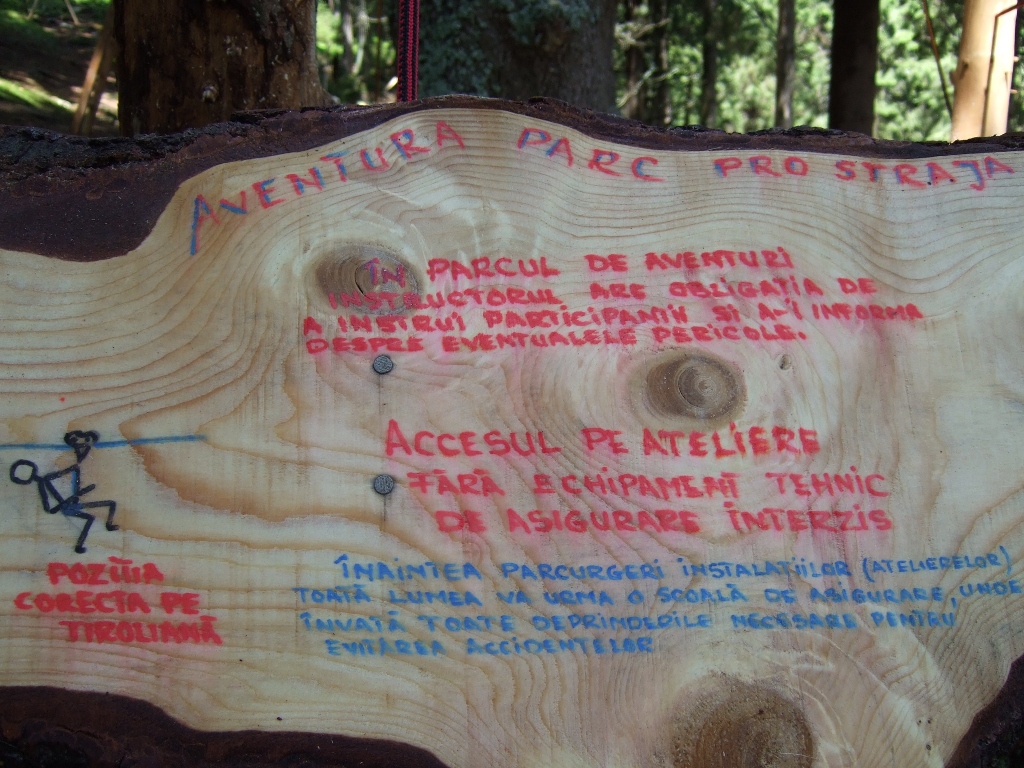 AVENTURA PARC PRO STRAJA
ÎN PARCUL DE AVENTURI
INSTRUCTORUL ARE OBLIGAȚIA DE
A INSTRUI PARTICIPANȚII SI A-I INFORMA
DESPRE EVENTUALELE PERICOLE.
ACCESUL PE ATELIERE
FĂRĂ ECHIPAMENT TEHNIC
DE ASIGURARE INTERZIS
POZIȚIA
CORECTA PE
TIROLIANĂ
ÎNAINTEA PARCURGERI INSTALAȚIILOR (ATELIERELOR)
TOATĂ LUMEA VA URMA O SCOALĂ DE ASIGURARE, UNDE
ÎNVAȚĂ TOATE DEPRINDERILE NECESARE PENTRU
EVITAREA ACCIDENTELOR